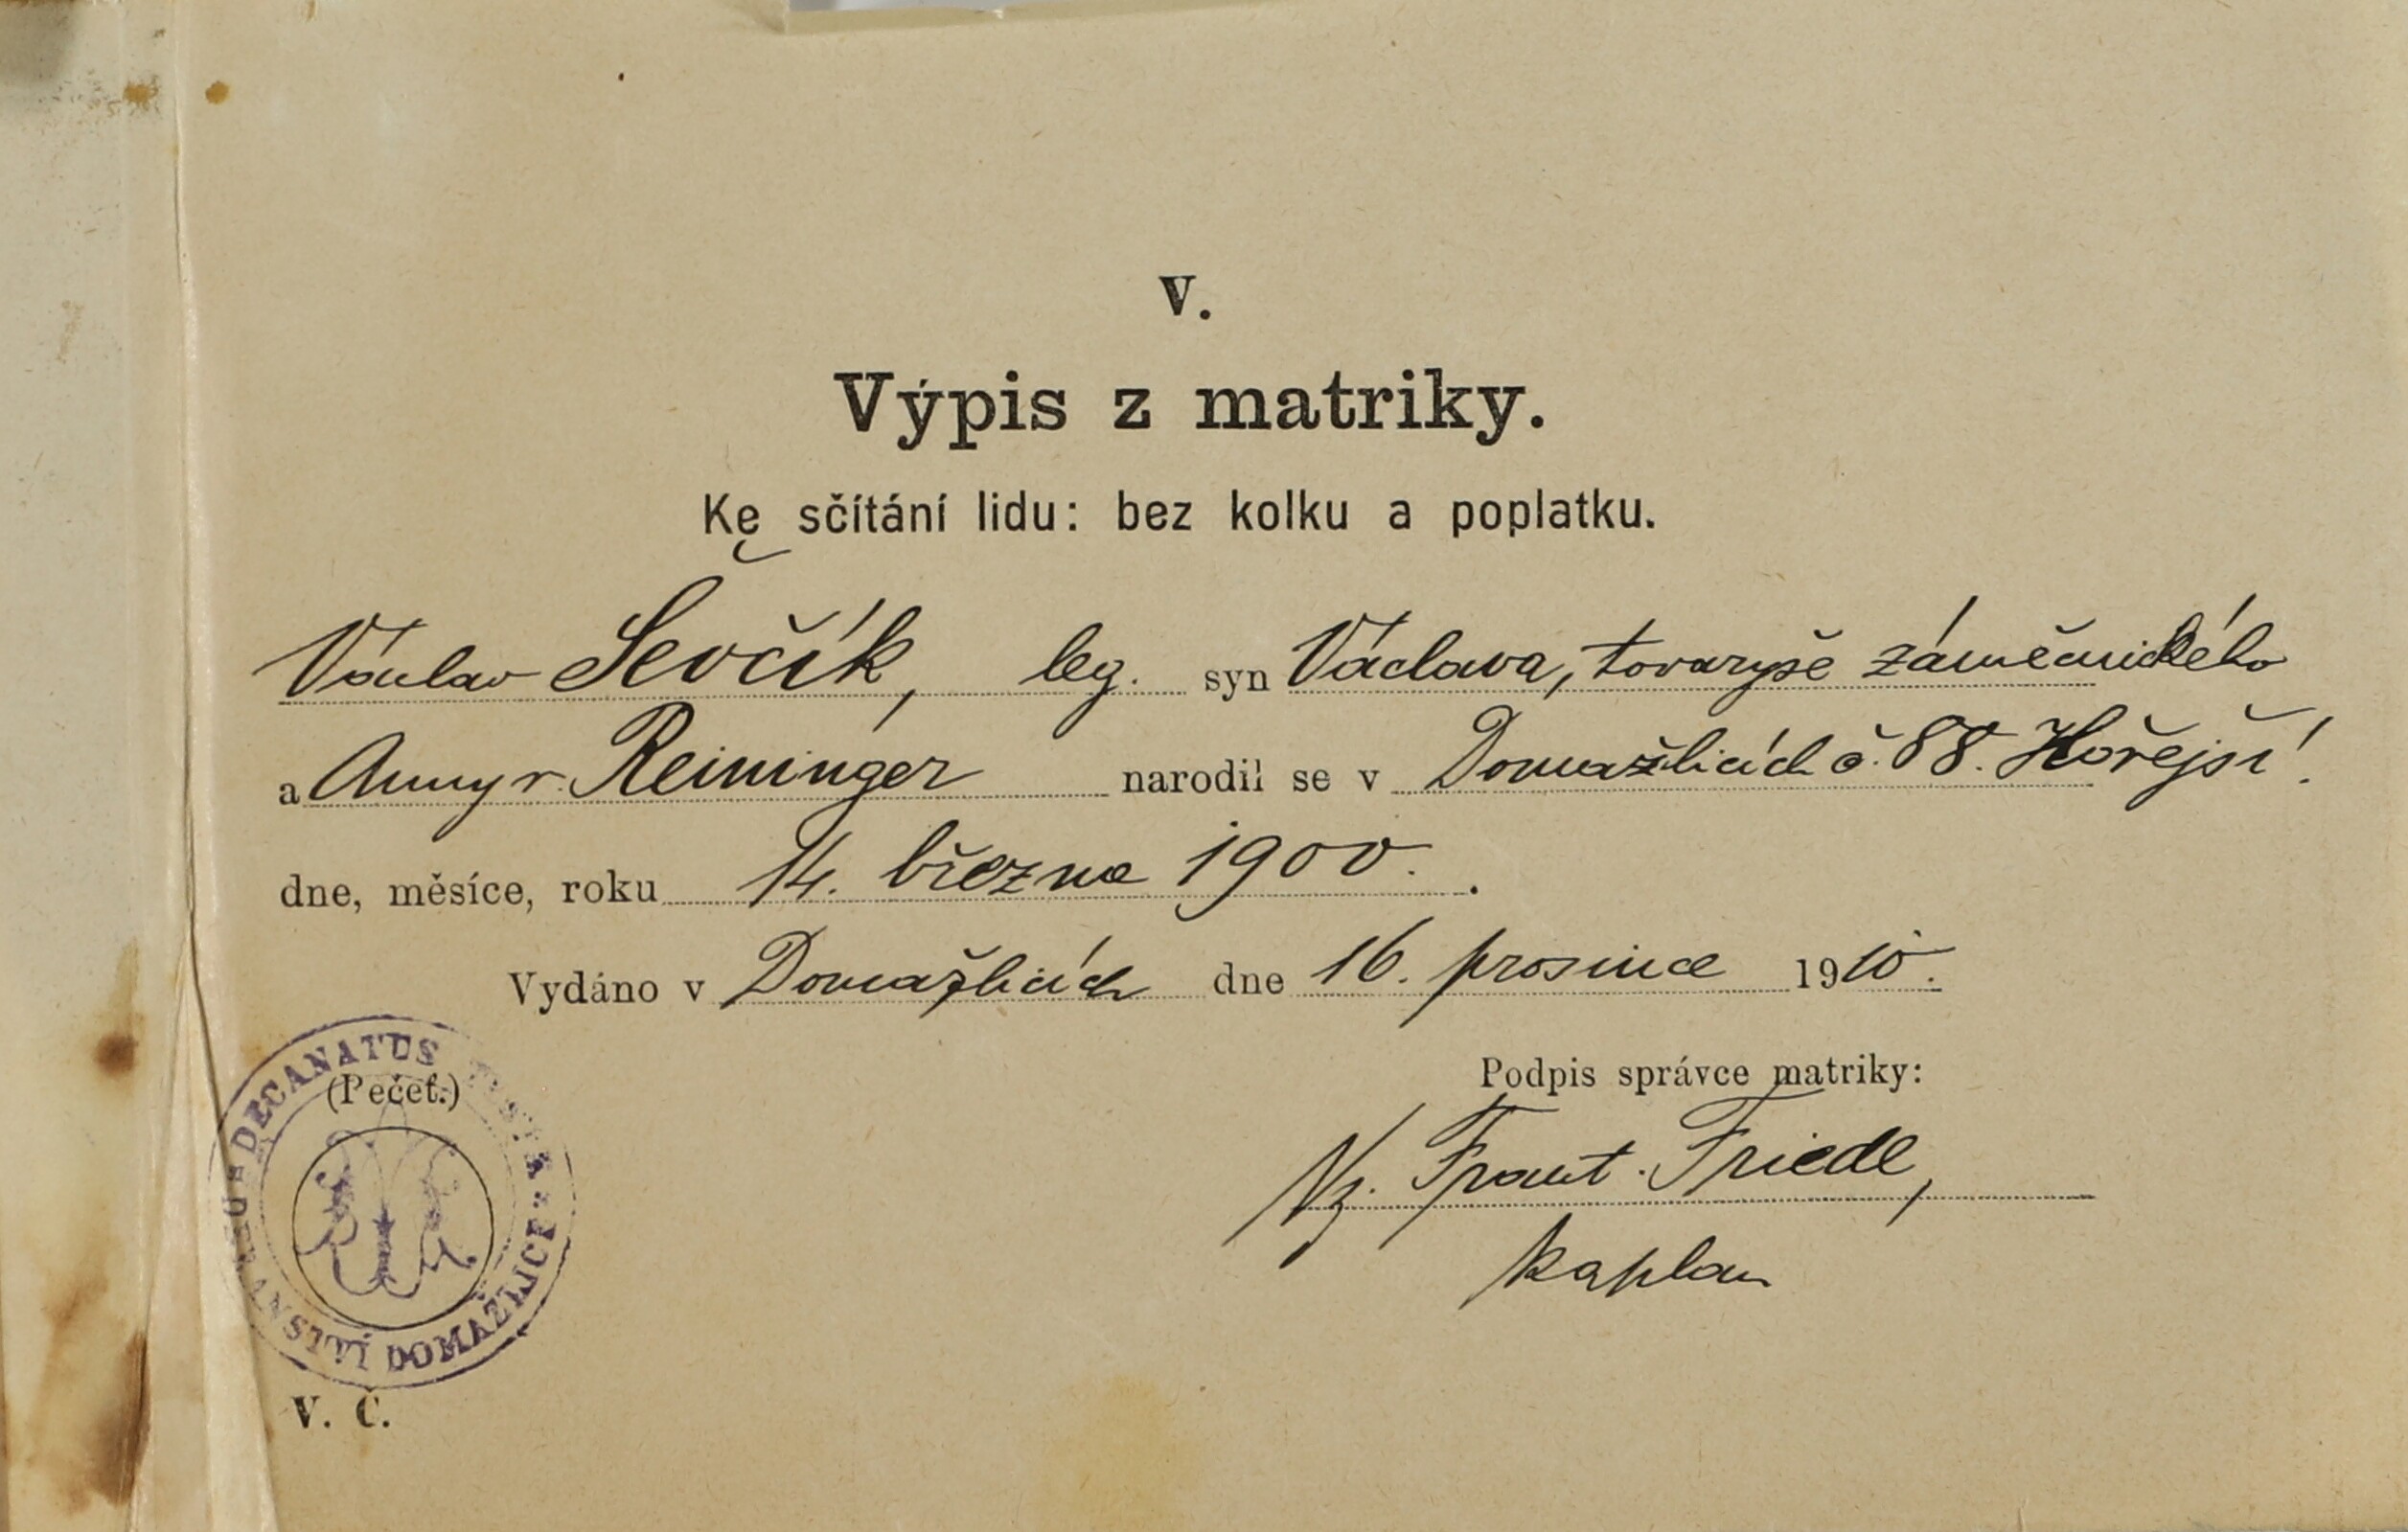 V.
Výpis z matriky.
Ke sčítání lidu: bez kolku a poplatku.
Václav Ševčík, leg. syn Václava, tovaryše zámečnického
a Anny r. Reininger narodil se v Domažlicích č. 88. Hořejší.
dne, měsíce, roku 14. března 1900.
Vydáno v Domažlicích dne 16. prosince 1910.
DECANATUS
(Pečeť.)
DOMAŽLICE
Podpis správce matriky:
Vz. Frant. Friedl,
kaplan
V. Č.